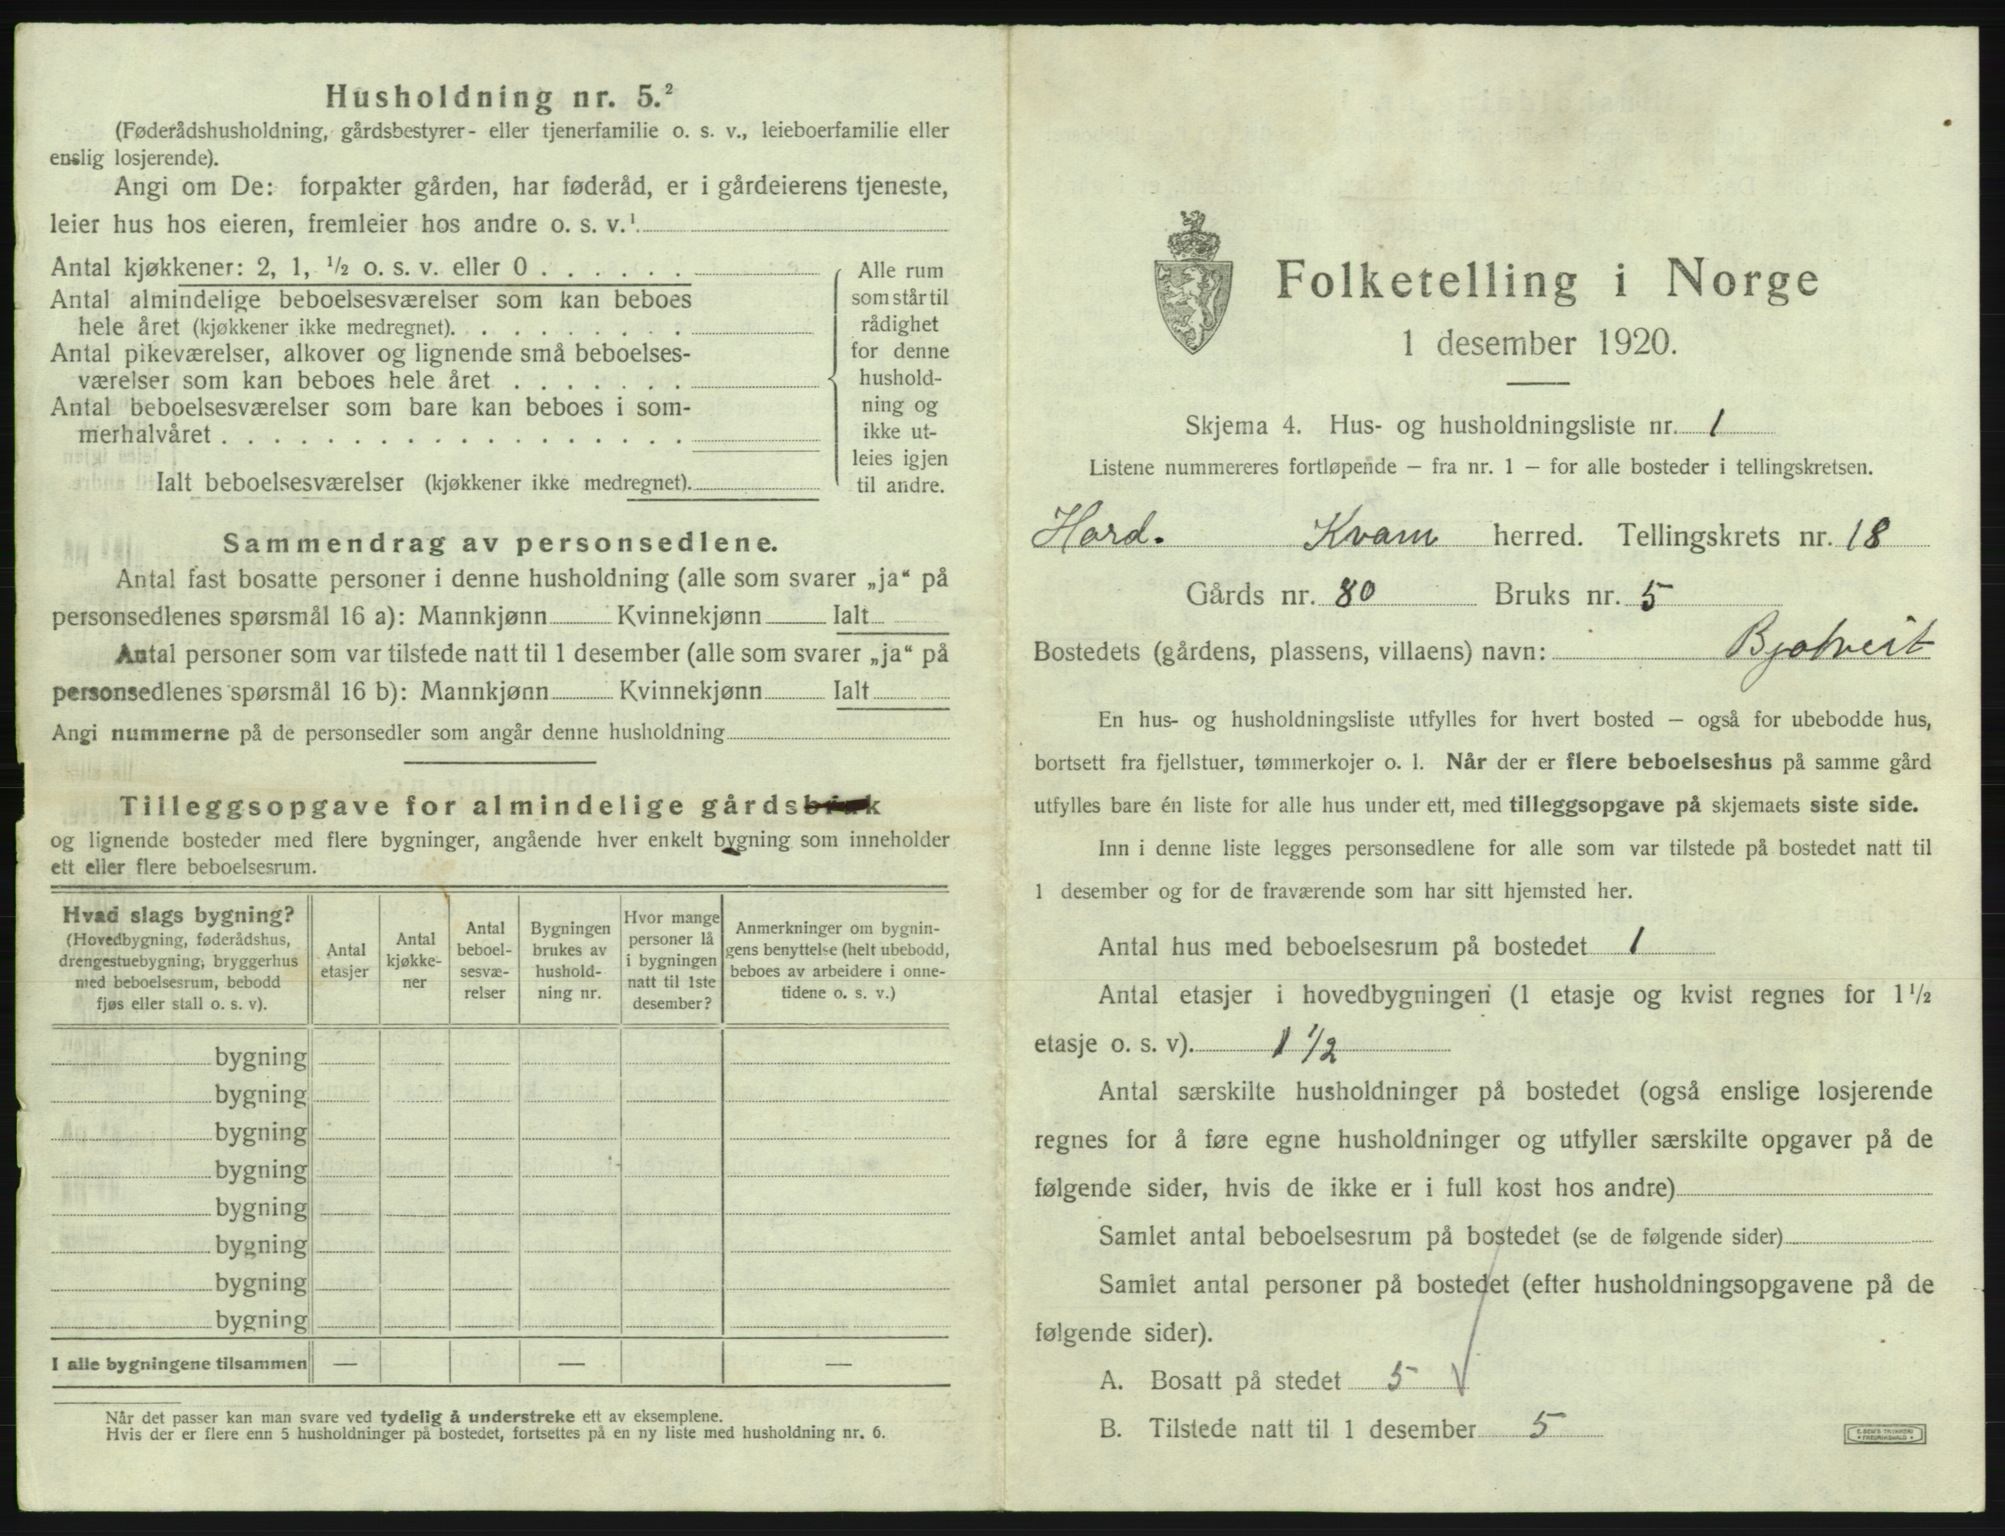 Husholdning nr. 5.²
(Føderådshusholdning, gårdsbestyrer- eller tjenerfamilie o. s. v., leieboerfamilie eller
enslig losjerende).
Angi om De: forpakter gården, har føderåd, er i gårdeierens tjeneste,
leier hus hos eieren, fremleier hos andre o. s. v.¹
Antal kjøkkener: 2, 1, ½ o. s. v. eller 0 . . . . . .
Antal almindelige beboelsesværelser som kan beboes
hele året (kjøkkener ikke medregnet). . . . . . . . .
Antal pikeværelser, alkover og lignende små beboelses-
værelser som kan beboes hele året . . . . . . .
Antal beboelsesværelser som bare kan beboes i som-
merhalvåret . . . . . . . . . . . . . . . . . .
Ialt beboelsesværelser (kjøkkener ikke medregnet).
Alle rum
som står til
rådighet
for denne
hushold-
ning og
ikke ut-
leies igjen
til andre.
Sammendrag av personsedlene.
Antal fast bosatte personer i denne husholdning (alle som svarer „ja“ på
personsedlenes spørsmål 16 a): Mannkjønn Kvinnekjønn Ialt
Antal personer som var tilstede natt til 1 desember (alle som svarer „ja“ på
personsedlenes spørsmål 16 b): Mannkjønn Kvinnekjønn Ialt
Angi nummerne på de personsedler som angår denne husholdning
Tilleggsopgave for almindelige gårdsbruk
og lignende bosteder med flere bygninger, angående hver enkelt bygning som inneholder
ett eller flere beboelsesrum.
Hvad slags bygning?
(Hovedbygning, føderådshus,
drengestuebygning, bryggerhus
med beboelsesrum, bebodd
fjøs eller stall o. s. v).
Antal
etasjer
Antal
kjøkke-
ner
Antal
beboel-
sesvæ-
relser
Bygningen
brukes av
hushold-
ning nr.
Hvor mange
personer lå
i bygningen
natt til 1ste
desember?
Anmerkninger om bygnin-
gens benyttelse (helt ubebodd,
beboes av arbeidere i onne-
tidene o. s. v.)
bygning
bygning
bygning
bygning
bygning
bygning
bygning
bygning
I alle bygningene tilsammen — — —
Når det passer kan man svare ved tydelig å understreke ett av eksemplene.
Hvis der er flere enn 5 husholdninger på bostedet, fortsettes på en ny liste med husholdning nr. 6.
Folketelling i Norge
1 desember 1920.
Skjema 4. Hus- og husholdningsliste nr. 1
Listene nummereres fortløpende — fra nr. 1 — for alle bosteder i tellingskretsen.
Hord. Kvam herred. Tellingskrets nr. 18
Gårds nr. 80 Bruks nr. 5
Bostedets (gårdens, plassens, villaens) navn: Bjotveit
En hus- og husholdningsliste utfylles for hvert bosted — også for ubebodde hus,
bortsett fra fjellstuer, tømmerkojer o. l. Når der er flere beboelseshus på samme gård
utfylles bare én liste for alle hus under ett, med tilleggsopgave på skjemaets siste side.
Inn i denne liste legges personsedlene for alle som var tilstede på bostedet natt til
1 desember og for de fraværende som har sitt hjemsted her.
Antal hus med beboelsesrum på bostedet 1
Antal etasjer i hovedbygningen (1 etasje og kvist regnes for 1½
etasje o. s. v). 1 ½
Antal særskilte husholdninger på bostedet (også enslige losjerende
regnes for å føre egne husholdninger og utfyller særskilte opgaver på de
følgende sider, hvis de ikke er i full kost hos andre)
Samlet antal beboelsesrum på bostedet (se de følgende sider)
Samlet antal personer på bostedet (efter husholdningsopgavene på de
følgende sider).
A. Bosatt på stedet 5
B. Tilstede natt til 1 desember 5